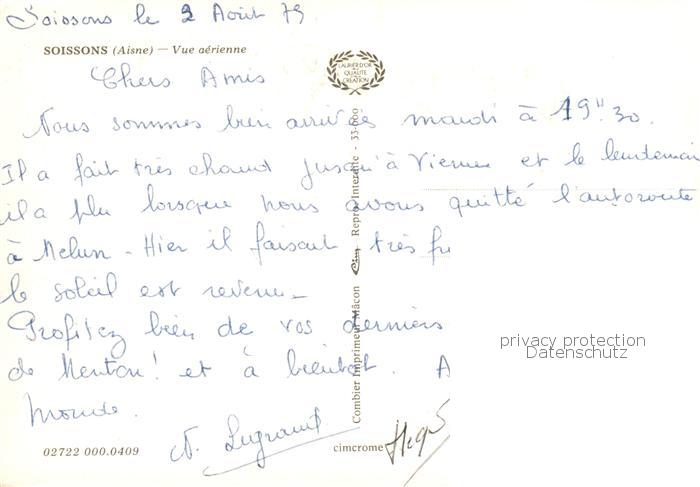 Soissons le 2 Août 79
SOISSONS (Aisne) — Vue aérienne
LAURIER D'OR
DE LA
QUALITÉ
DE LA
CRÉATION
Chers Amis
Nous sommes bien arrivés mardi à 19h 30.
Il a fait très chaud jusqu'à Vienne et le lendemain
il a plu lorsque nous avons quitté l'autoroute
à Melun - Hier il faisait très
le soleil est revenu -
Profitez bien de vos derniers
de Menton ! et à bientôt. A
monde.
N. Legrand
Combier Imprimeur Mâcon Cim Repro. Interdite - 33-000
privacy protection
Datenschutz
02722 000.0409
cimcrome